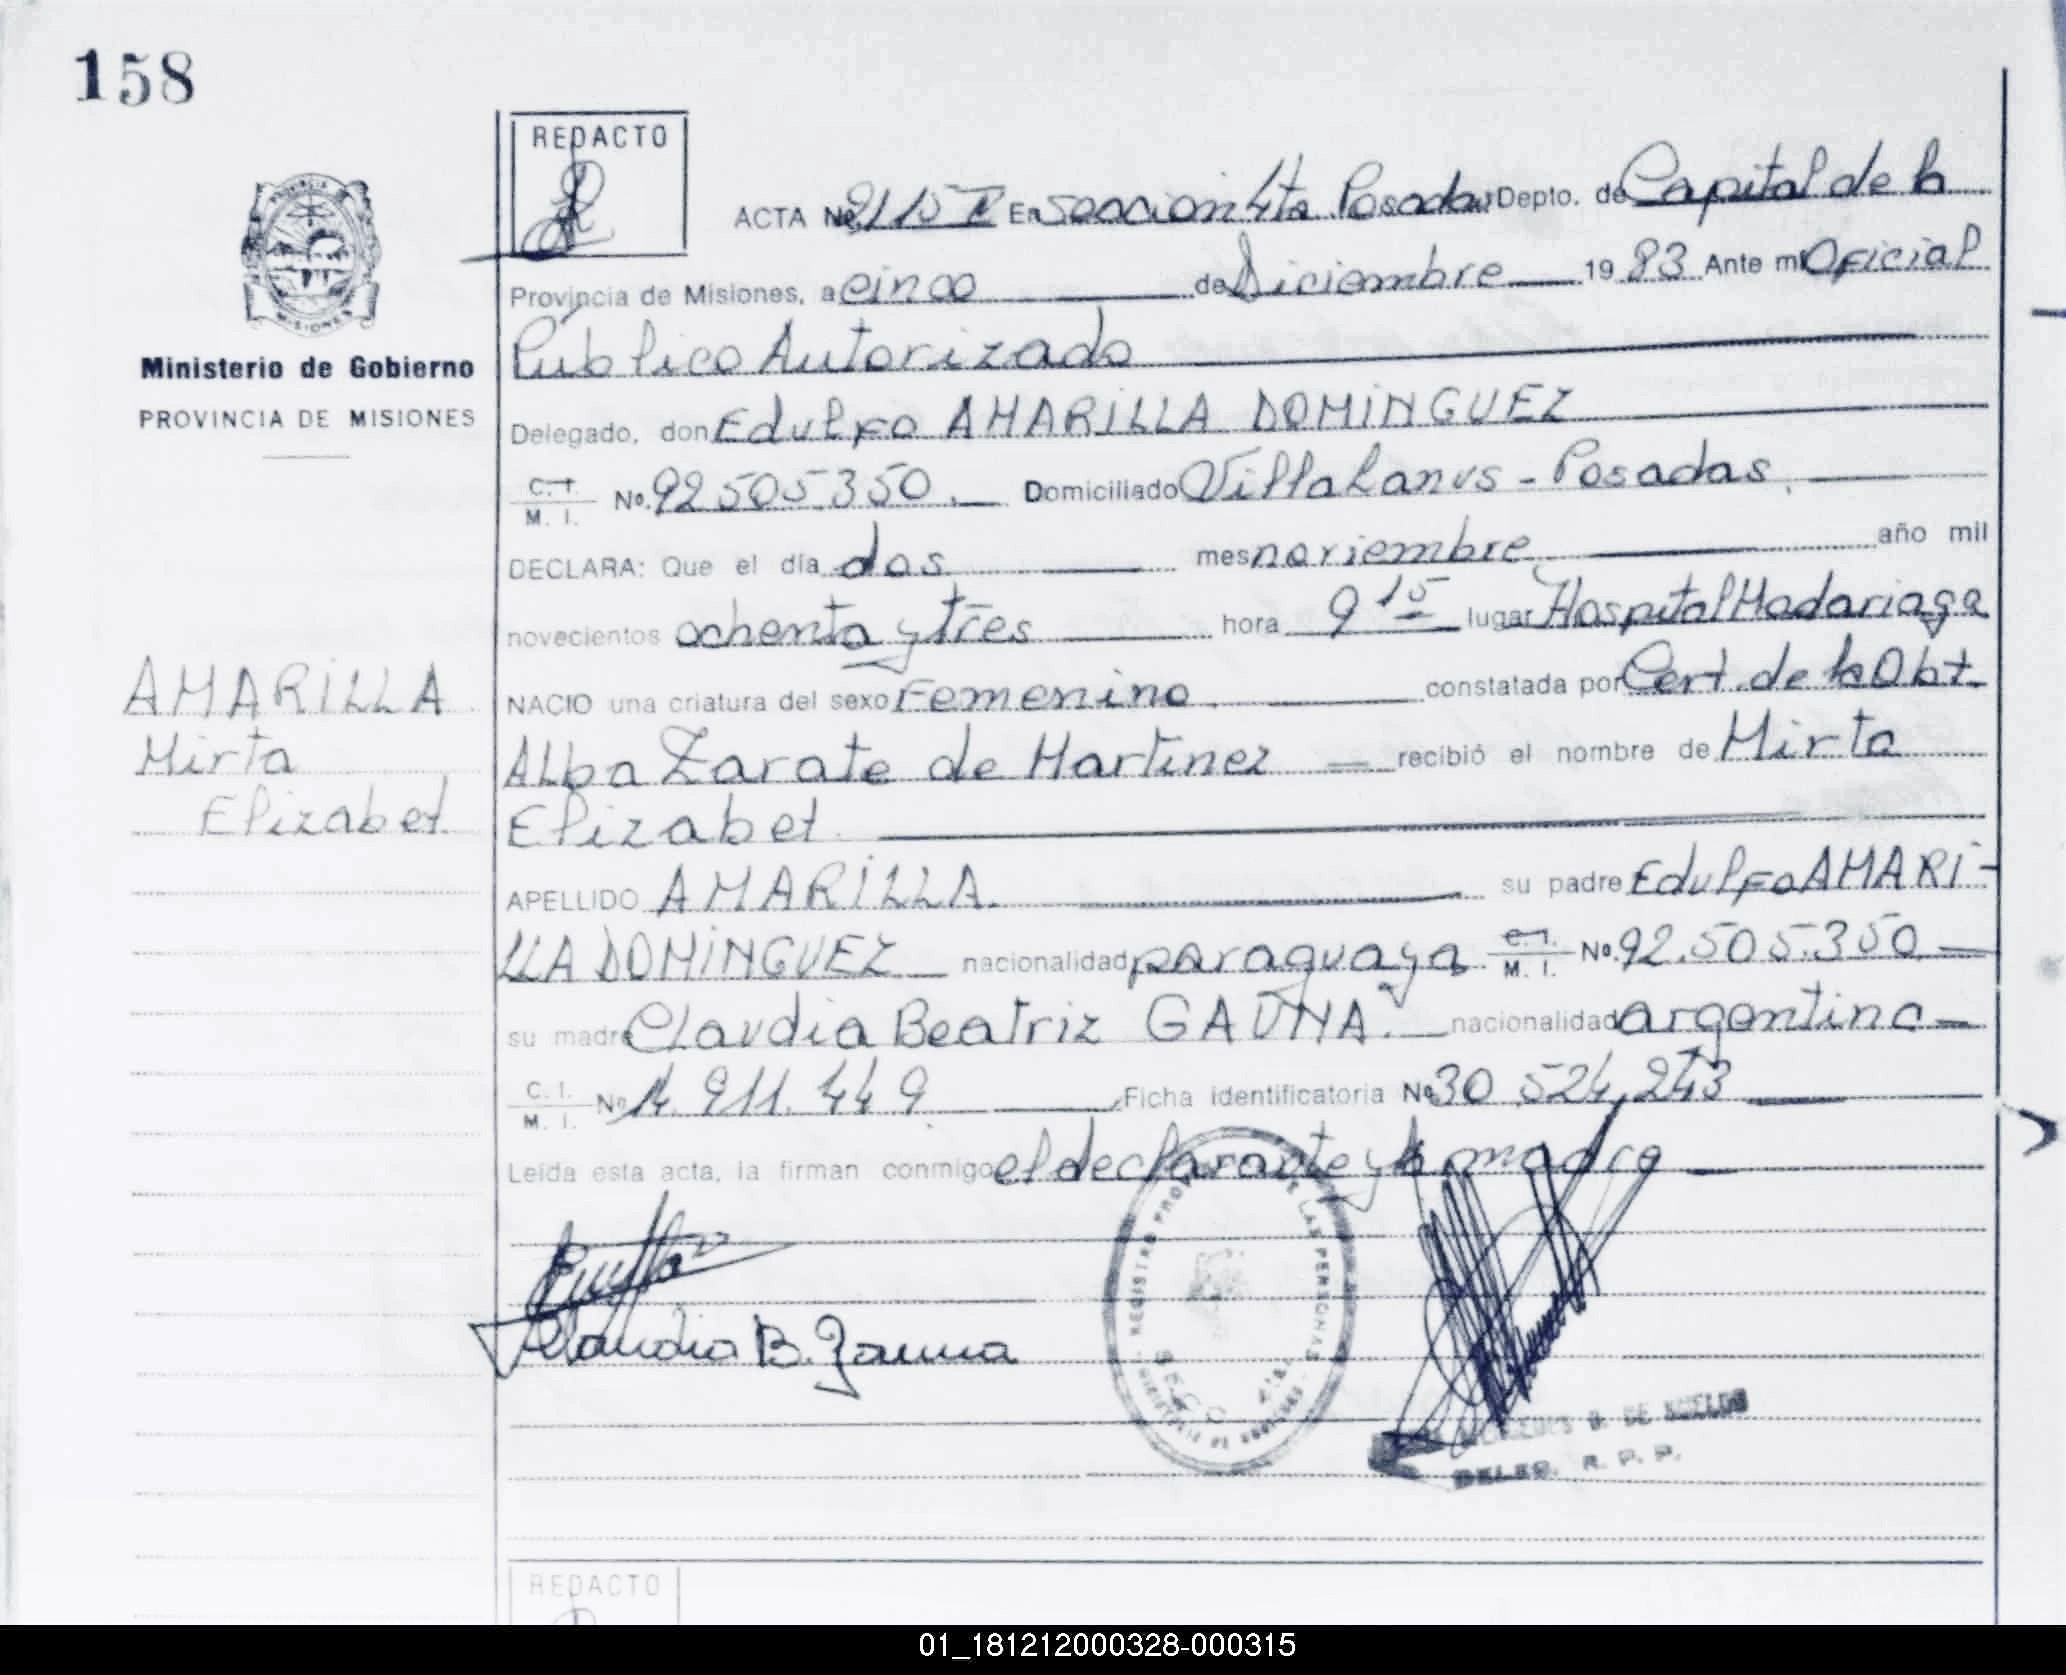 158
REDACTO
ACTA No. 2115 I En Seccion 4ta Posadas Depto. de Capital de la
Provincia de Misiones, a cinco de Diciembre 1983 Ante mi Oficial
Publico Autorizado
Ministerio de Gobierno
PROVINCIA DE MISIONES
Delegado, don Edulfo AMARILLA DOMINGUEZ
C. I. M. I. No. 92.505.350. Domiciliado Villa Lanus - Posadas.
DECLARA: Que el día dos mes noviembre año mil
novecientos ochenta y tres hora 9 15 lugar Hospital Madariaga
AMARILLA
Mirta
Elizabet.
NACIO una criatura del sexo Femenino. constatada por Cert. de la Obt.
Alba Zarate de Martinez recibió el nombre de Mirta
Elizabet.
APELLIDO AMARILLA. su padre Edulfo AMARI-
LLA DOMINGUEZ nacionalidad paraguaya C. I. M. I. No. 92.505.350
su madre Claudia Beatriz GAUNA. nacionalidad argentina
C. I. M. I. No. 14.911.449 Ficha identificatoria No. 30.524.243
Leída esta acta, la firman conmigo el declarante y la madre
Claudia B. Gauna
REGISTRO PROV DE LAS PERSONAS
MINISTERIO DE GOBIERNO
B. DE
DELEG. R. P. P.
REDACTO
01_181212000328-000315